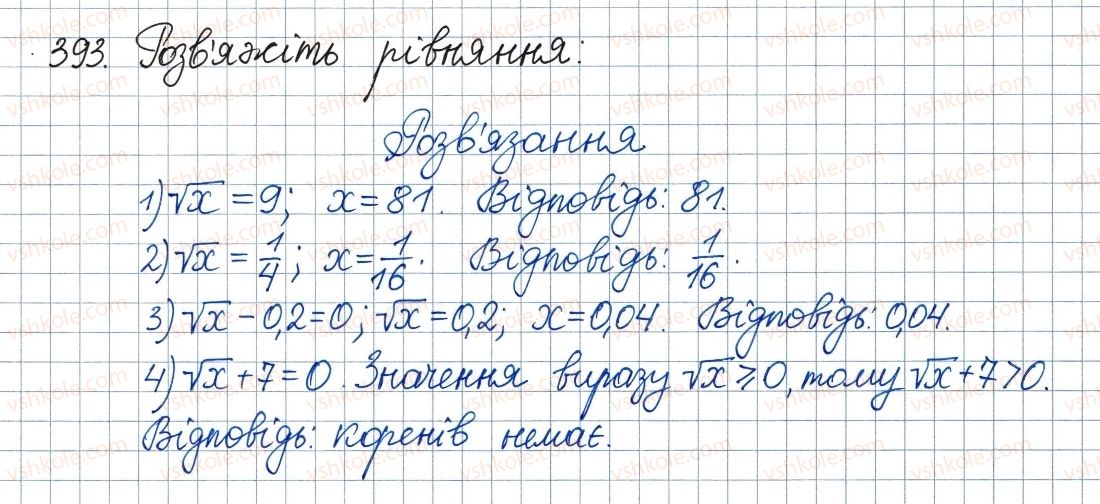 393. Розв'яжіть рівняння:
Розв'язання
1) √x = 9; x = 81. Відповідь: 81.
2) √x = 1/4; x = 1/16. Відповідь: 1/16.
3) √x − 0,2 = 0; √x = 0,2; x = 0,04. Відповідь: 0,04.
4) √x + 7 = 0. Значення виразу √x ⩾ 0, тому √x + 7 > 0.
Відповідь: коренів немає.